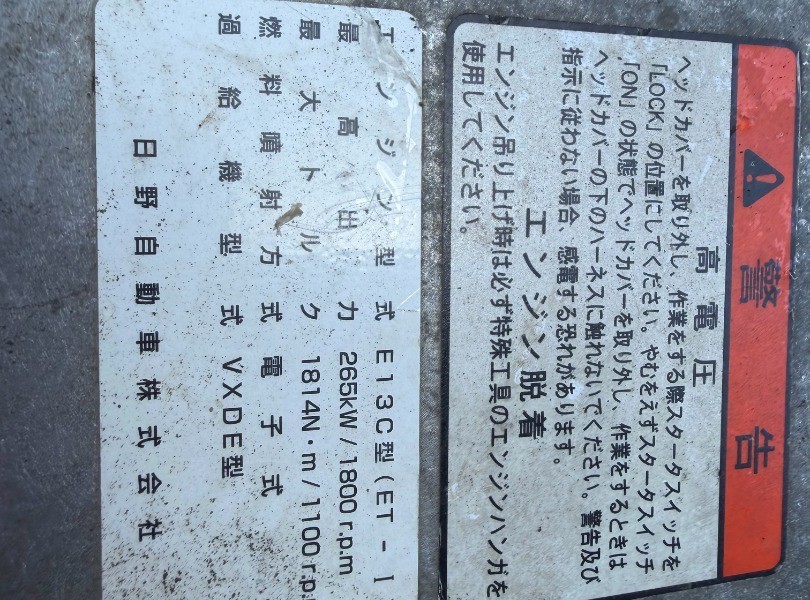 警告
高電圧
ヘッドカバーを取り外し、作業をする際スタータスイッチを
「LOCK」の位置にしてください。やむをえずスタータスイッチ
「ON」の状態でヘッドカバーを取り外し、作業をするときは
ヘッドカバーの下のハーネスに触れないでください。警告及び
指示に従わない場合、感電する恐れがあります。
エンジン脱着
エンジン吊り上げ時は必ず特殊工具のエンジンハンガを
使用してください。
エンジン型式 E13C型(ET-I
最高出力 265kW/1800r.p.m
最大トルク 1814N・m/1100r.p.
燃料噴射方式 電子式
過給機型式 VXDE型
日野自動車株式会社